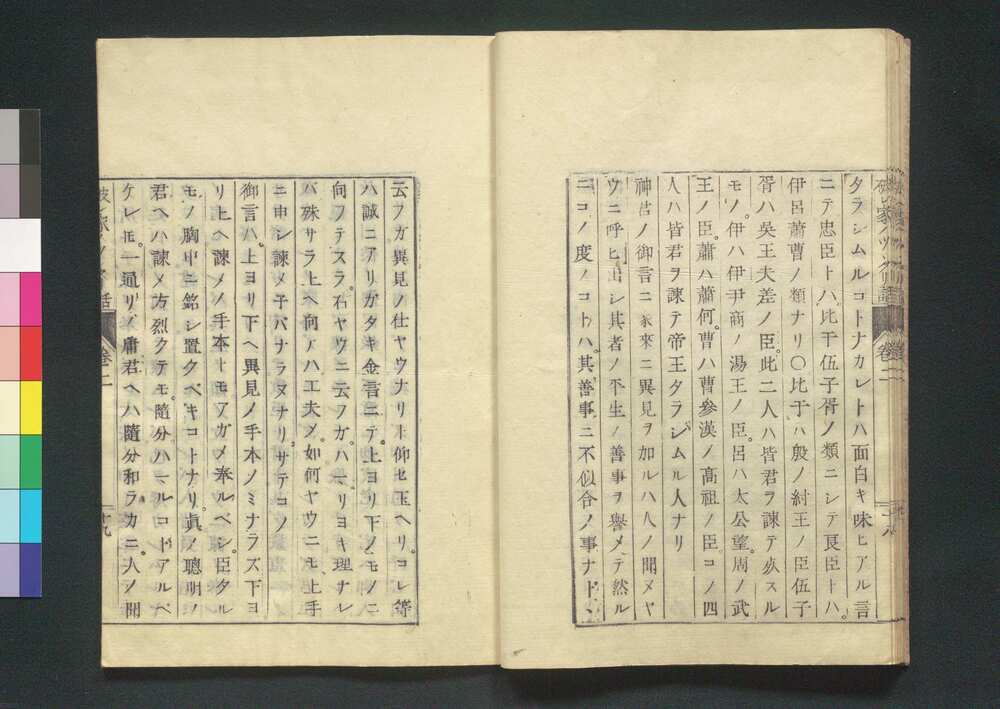 タラシムルコトナカレトハ面白キ味ヒアル言
ニテ忠臣トハ。比干伍子胥ノ類ニシテ良臣トハ。
伊呂蕭曹ノ類ナリ〇比干ハ殷ノ紂王ノ臣伍子
胥ハ吳王夫差ノ臣。此二人ハ皆君ヲ諫テ
モノ。伊ハ伊尹商ノ湯王ノ臣。呂ハ太公望周ノ武
王ノ臣。蕭ハ蕭何。曹ハ曹參漢ノ高祖ノ臣。コノ四
人ハ皆君ヲ諫テ帝王タラシムル人ナリ
神君ノ御言ニ家來ニ異見ヲ加ルハ人ノ聞メヤ
ウニ呼ヒ出シ其者ノ平生ノ善事ヲ譽メテ然ル
ニコノ度ノコトハ。其善事ニ不似合ノ事ナド丶
云フガ異見ノ仕ヤウナリト仰セ玉ヘリ。コレ等
ハ誠ニアリガタキ金言ニテ。上ヨリ下ノモノニ
向フテスラ。右ヤウニ云フガ。ハリヨキ理ナレ
バ殊サラ上ヘ向ハハ工夫ノ如何ヤウニモ上手
ニ申シ諫メ子バナラヌナリ。サテコノ
御言ハ。上ヨリ下ヘ異見ノ手本ノミナラズ下ヨ
リ上ヘ諫メノ手本トモアガメ奉ルベシ。臣タル
モノ胸中ニ銘シ置クベキコトナリ。眞ノ聰明ノ
君ヘハ諫メ方烈クテモ。隨分ハールコトアルベ
ケレモ。一通リノ庸君ヘハ隨分和ラカニ。人ノ聞
卷二
十九